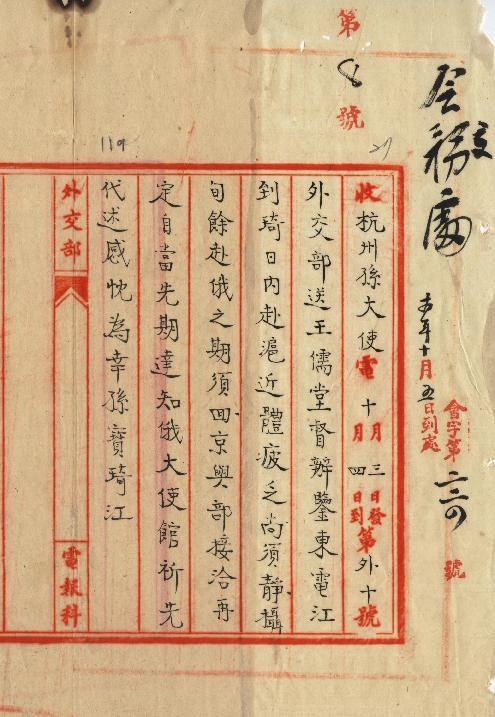 第8號
交會務處
十月五日到處
會字第二三〇號
收杭州孫大使電 十月三日發 十月四日到 第外十號
外交部送王儒堂督辦鑒東電江
到琦日內赴滬近體疲乏尚須靜攝
旬餘赴俄之期須回京與部接洽再
定自當先期達知俄大使館祈先
代述感忱為幸孫寶琦江
外交部
電報科
119
27